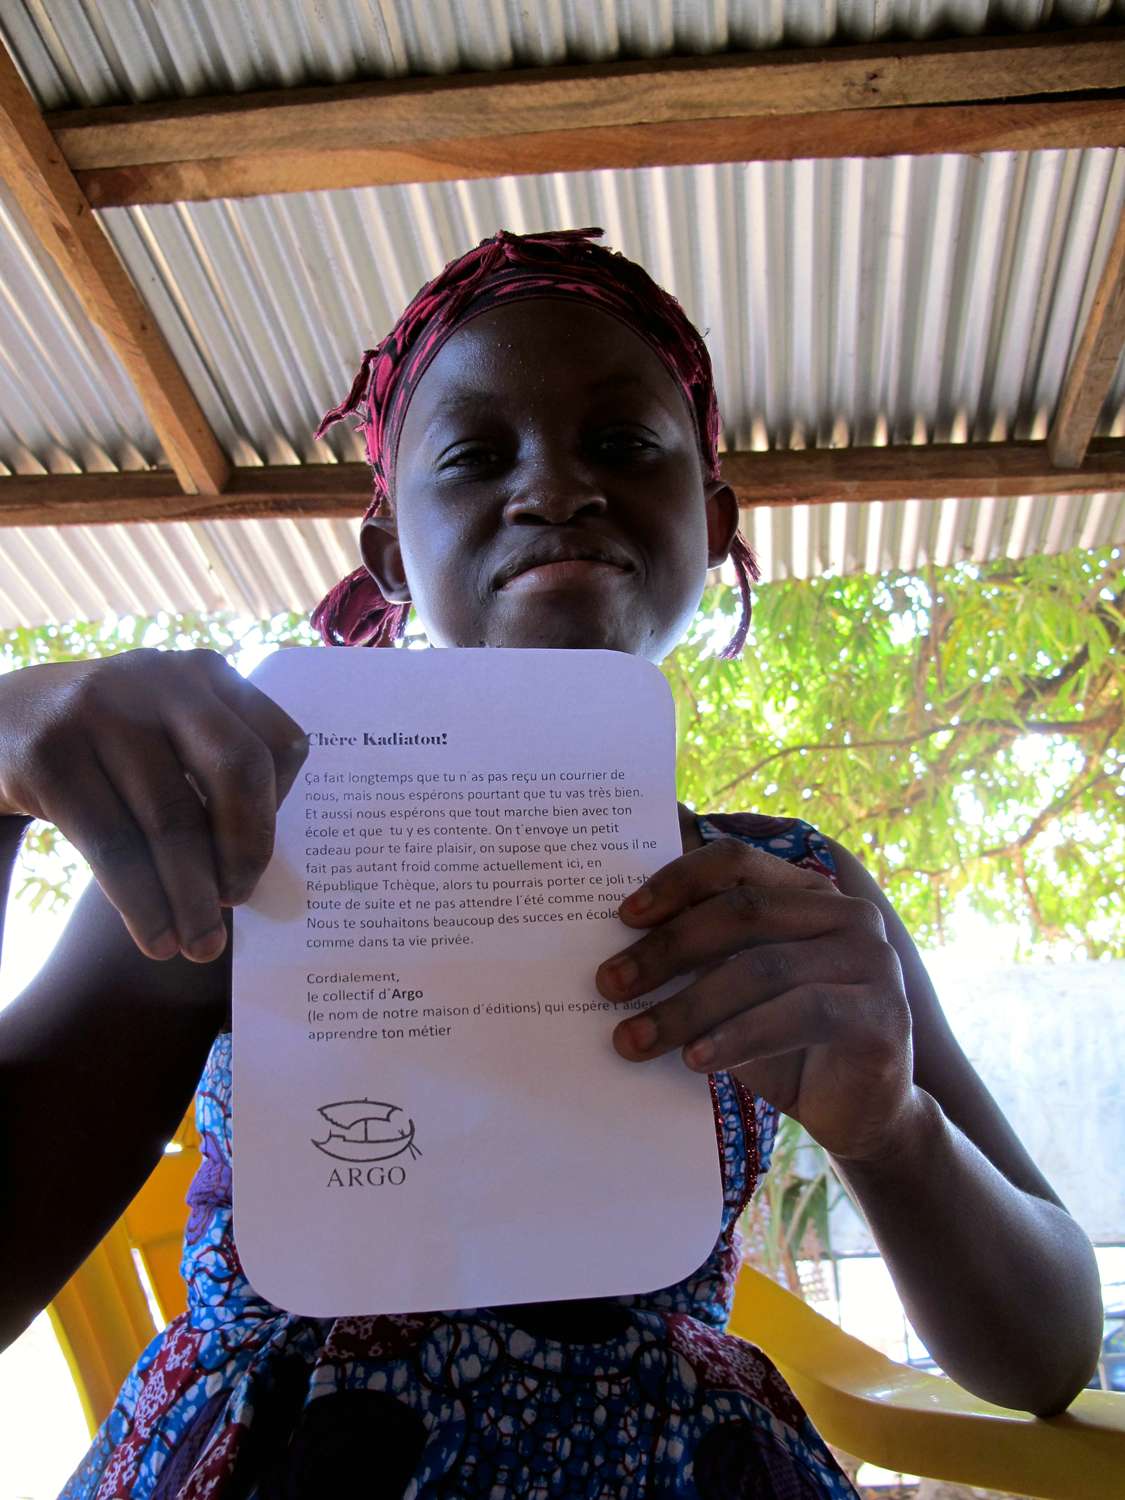 Chère Kadiatou!
Ça fait longtemps que tu n´as pas reçu un courrier de
nous, mais nous espérons pourtant que tu vas très bien.
Et aussi nous espérons que tout marche bien avec ton
école et que tu y es contente. On t´envoye un petit
cadeau pour te faire plaisir, on supose que chez vous il ne
fait pas autant froid comme actuellement ici, en
République Tchèque, alors tu pourrais porter ce joli
toute de suite et ne pas attendre l´été comme nous
Nous te souhaitons beaucoup des succes en école
comme dans ta vie privée.
Cordialement,
le collectif d´Argo
(le nom de notre maison d´éditions) qui espère t´aider
apprendre ton métier
ARGO